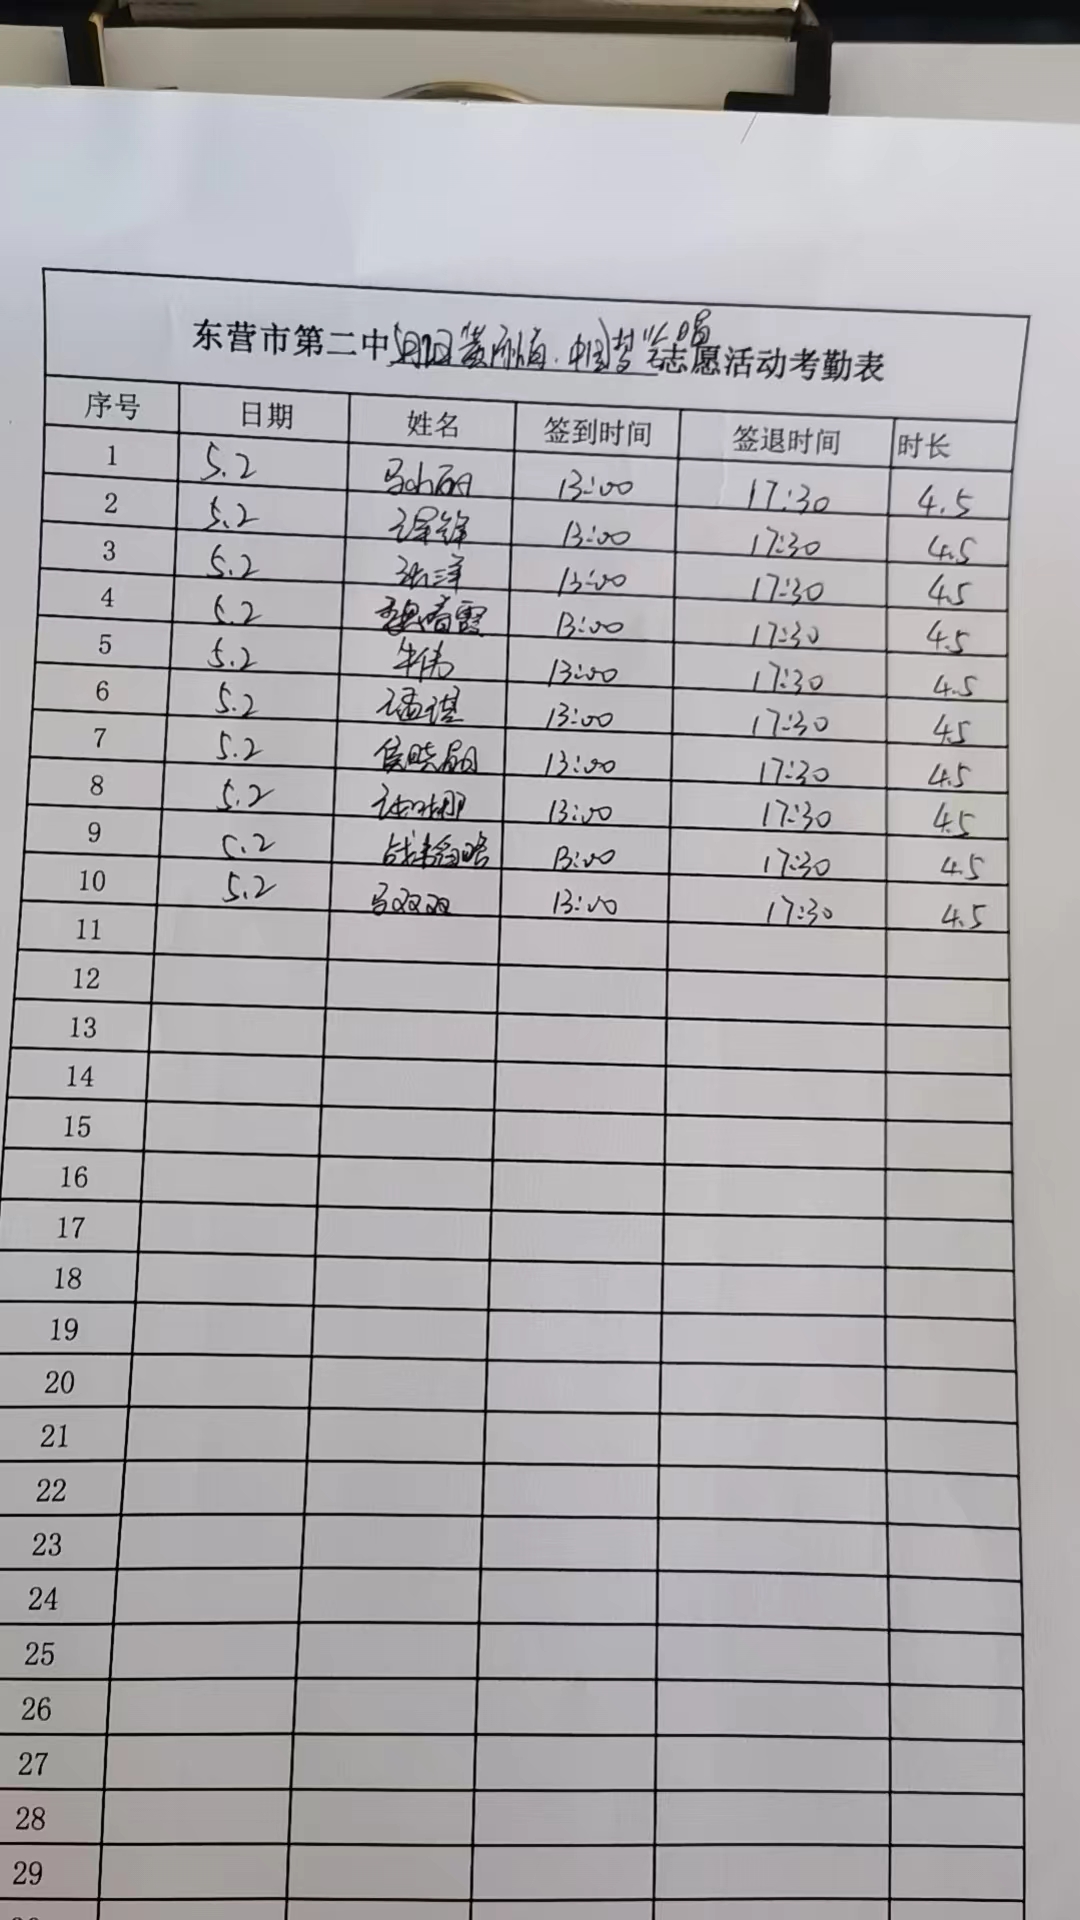 东营市第二中5月2日黄河情·中国梦"演唱志愿活动考勤表
序号 日期 姓名 签到时间 签退时间 时长
1 5.2 13:00 17:30 4.5
2 5.2 13:00 17:30 4.5
3 5.2 张洋 13:00 17:30 4.5
4 5.2 魏春霞 13:00 17:30 4.5
5 5.2 牛伟 13:00 17:30 4.5
6 5.2 13:00 17:30 4.5
7 5.2 侯晓娟 13:00 17:30 4.5
8 5.2 13:00 17:30 4.5
9 5.2 13:00 17:30 4.5
10 5.2 马双双 13:00 17:30 4.5
11
12
13
14
15
16
17
18
19
20
21
22
23
24
25
26
27
28
29